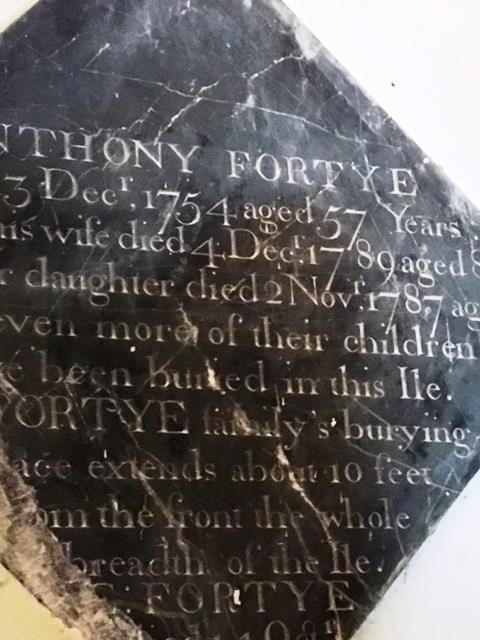 NTHONY FORTYE
3 Decr. 1754 aged 57 Years
his wife died 4 Decr. 1789 aged 8
r daughter died 2 Novr. 1787 ag
even more of their children
e been buried in this Ile.
FORTYE family's burying
ace extends about 10 feet
om the front the whole
breadth of the Ile.
E. FORTYE